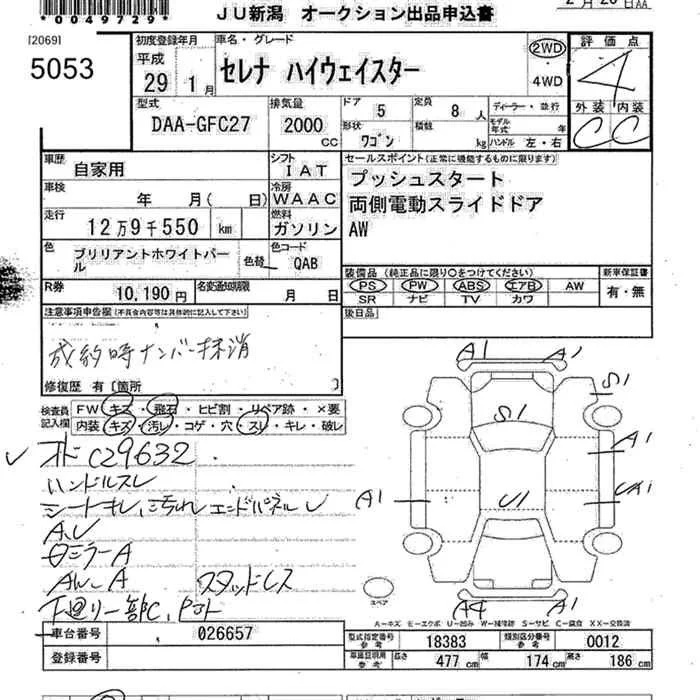 *0049729*
JU新潟 オークション出品申込書
[2069]
5053
初度登録年月
平成
29 1月
車名・グレード
セレナ ハイウェイスター
2WD
4WD
評価点
4
外装 内装
C C
型式
DAA-GFC27
排気量
2000 cc
ドア 5
定員 8人
ディーラー・並行
形状 ワゴン
積数 kg
モデル年式 年
ハンドル 左・右
車歴 自家用
シフト IAT
車検 年 月( 日)
冷房 WAAC
走行 12万9千550 km
燃料 ガソリン
色 ブリリアントホワイトパール
色替
色コード QAB
セールスポイント(正常に機能するものに限ります)
プッシュスタート
両側電動スライドドア
AW
装備品(純正品に限り○をつけてください)
PS PW ABS エアB AW
SR ナビ TV カワ
新車保証書
有・無
R券 10,190円
名変通知期限 月 日
後日品
注意事項申告欄(不具合内容等は具体的に記入して下さい)
成約時ナンバー抹消
修復歴 有 [箇所 ]
検査員記入欄
FW キズ・飛石・ヒビ割・リペア跡・×要
内装 キズ・汚レ・コゲ・穴・スレ・キレ・破レ
ハンドルスレ
シートキレ、汚れ エンドパネルU
A、U
ロミラーA
AW-A スタッドレス
下廻り一部C、Pコト
A1 A1
S1
S1
A1
A1
UA1
U1
A4 A1
スペア
A-キズ E-エクボ U-凹み W-補修跡 S-サビ C-腐食 XX-交換済
車台番号 026657
登録番号
型式指定番号 参考 18383
類別区分番号 参考 0012
車庫証明用 参考 長さ 477 cm 幅 174 cm 高さ 186 cm